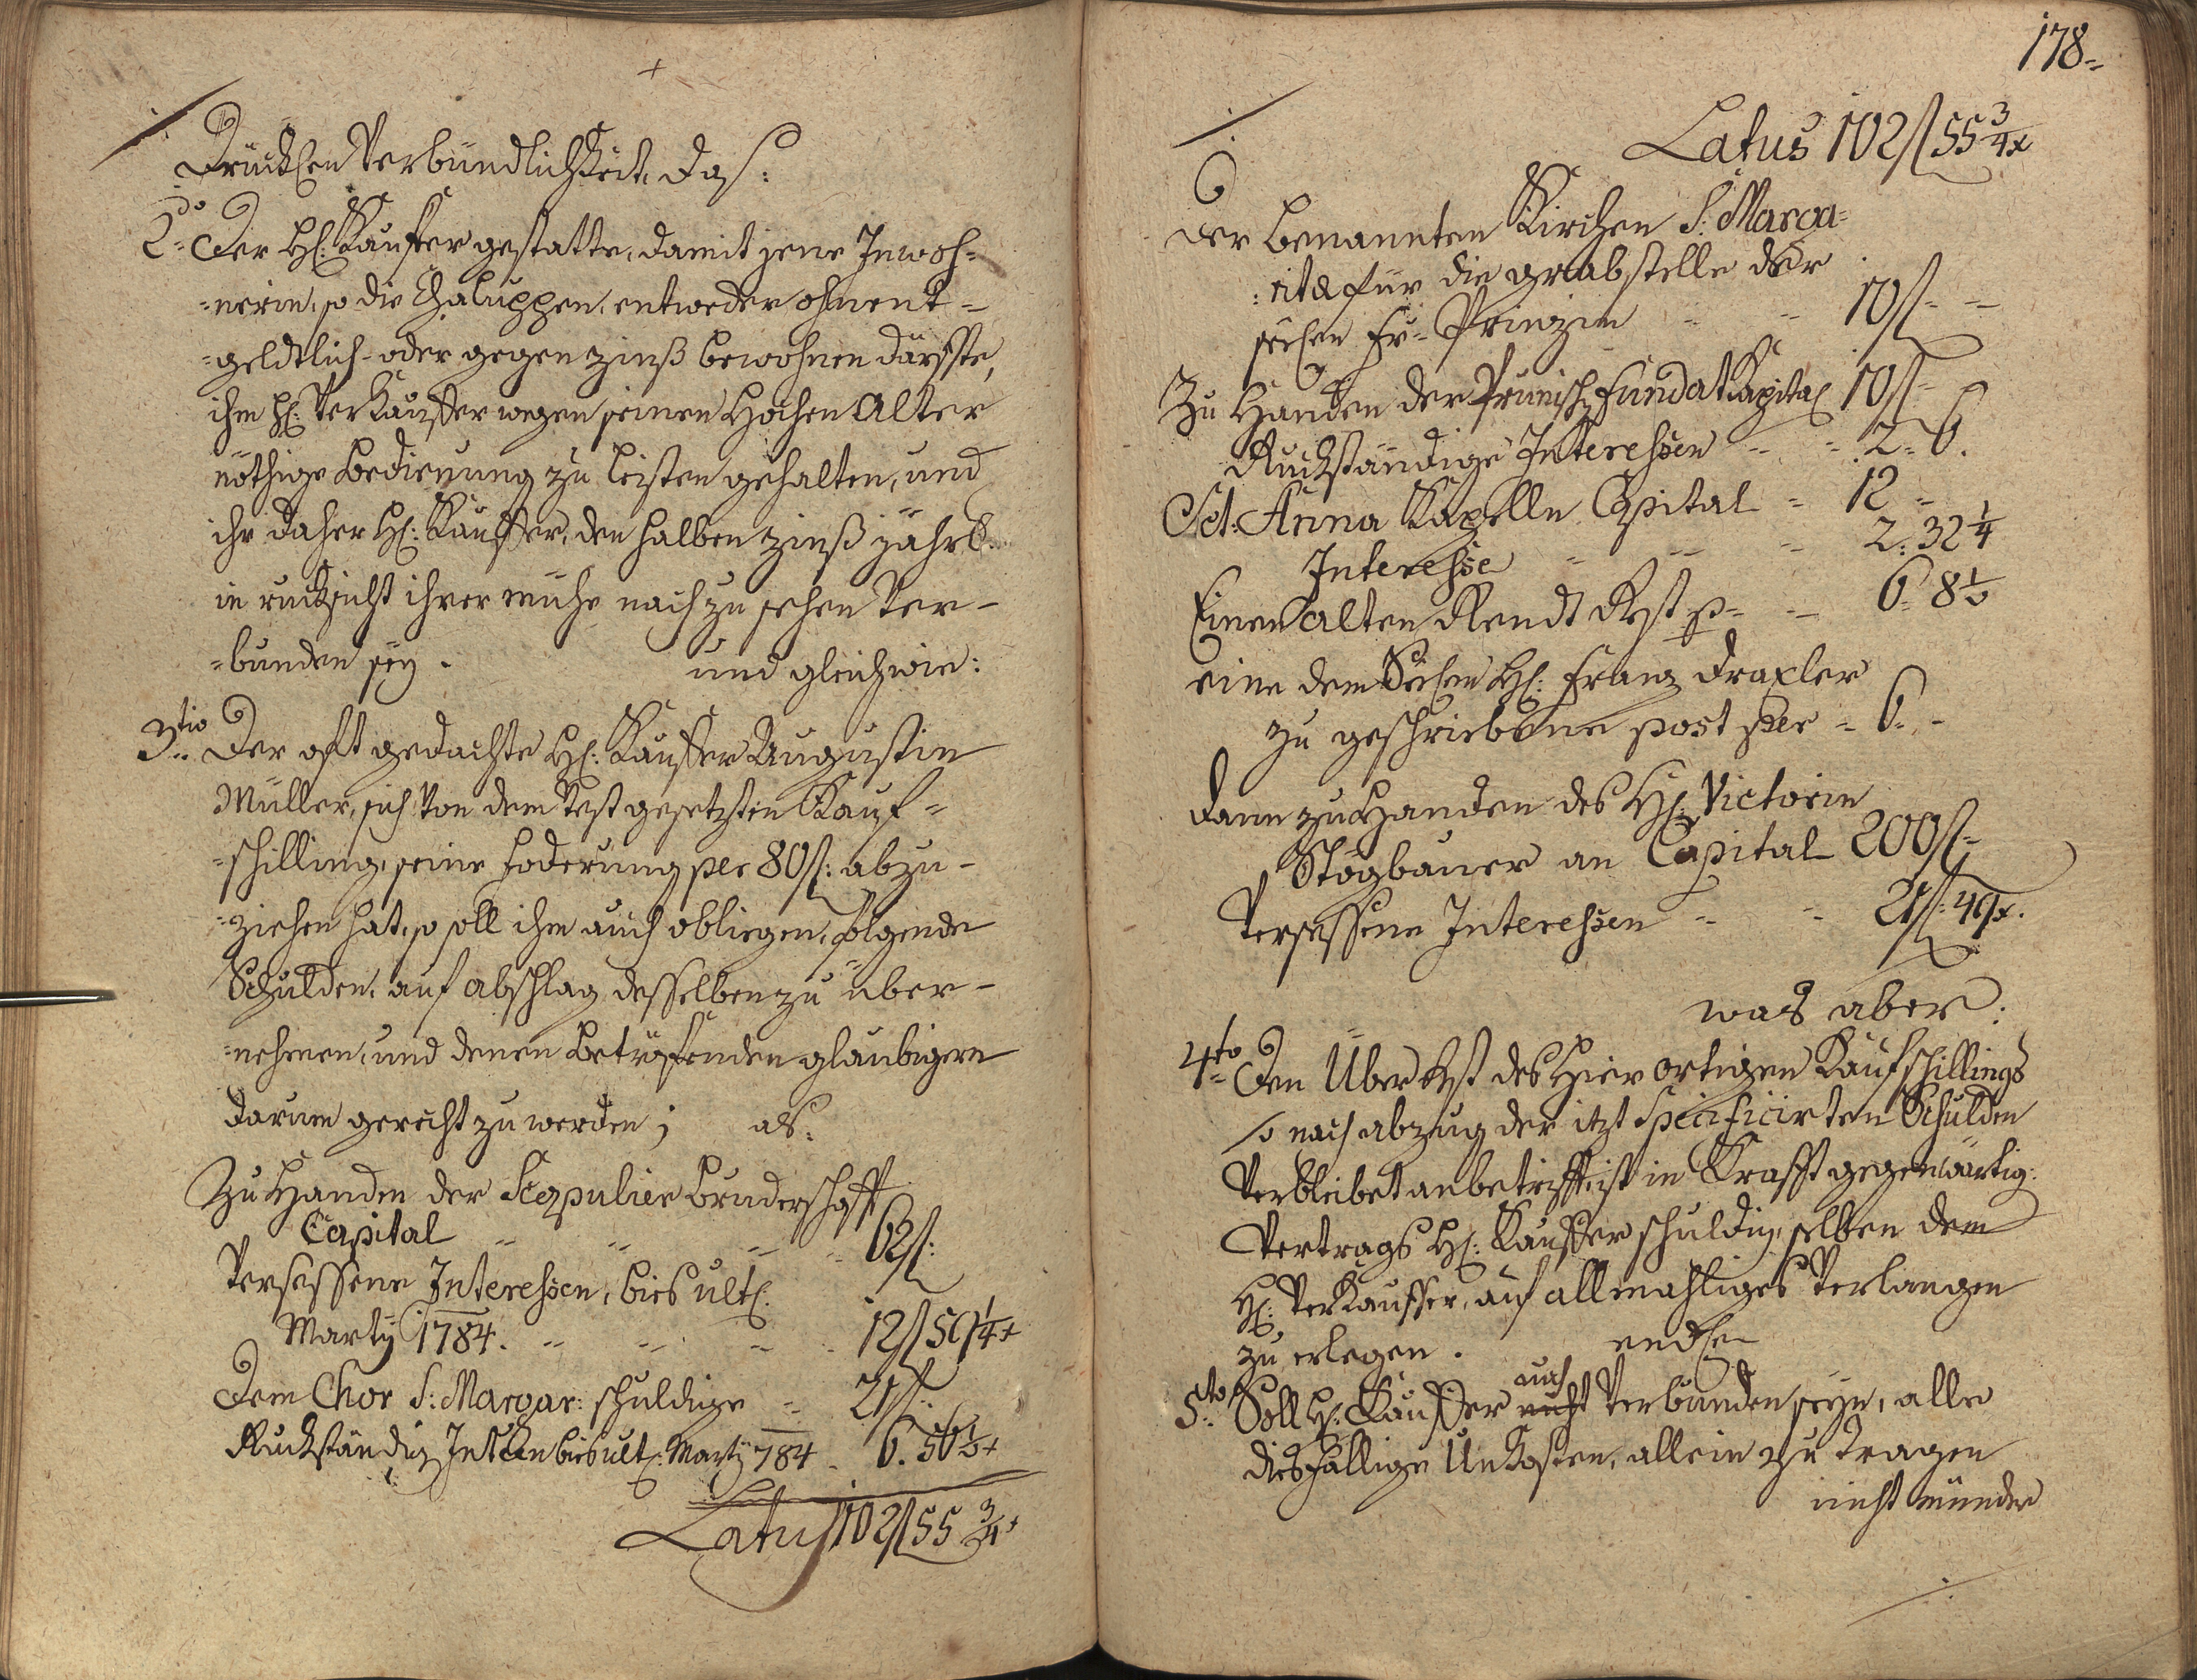 drücklichen Verbündlichkeit, daß:
2do Der H: Kauffer gestatte, damit jene Inwoh=
=nerin, so die Chaluppen, entweder ohnent=
=geldtlich- oder gegen zinß bewohnen därffte,
ihm H: Verkauffer wegen seinen Hochen Alter
nöthige Bedienung zu leisten gehalten, und
ihr daher H: Kauffer, den halben zinß jährl
in rucksicht ihrer mühe nach zu sehen Ver-
=bunden sey. und gleichwie:
3tio Der oft gedachte H: Kauffer Augustin
Müller, sich Von dem Vest gesetzten Kauf=
=schilling, seine Foderung per 80f: abzu-
=ziehen hat, so soll ihm auch obliegen, folgende
Schulden, auf abschlag desselben zu über-
=nehmen, und denen betreffenden glaubigern
darum gerecht zu werden; als:
Zu Handen der Scapulier bruderschafft
Capital 62f:
Versessene Interehsen, bies ult:
Martÿ 1784. 12f 59 1/4 x
Dem Chor S: Margar: schuldige 21f:
Ruckständig Intehsen bies ult: Martÿ 784 6. 56 1/2 x
Latus 102f 55 3/4 x
178
Latus 102f 55 3/4 x
der benannten Kirchen S: Marga=
:ritæ für die grabstelle der
seel: Fr: Prinzin 10f
Zu Handen der Prunisch Fundat Kapital 10f
Ruckständige Interehsen 2. 6.
Sct: Anna Kapelle Capital 12
Interehse 2. 32 1/4
Einen alten Rendt Rest p= 6. 8 1/2
eine dem H: Franz Draxler
zu geschriebene post per 6.
dann zu Handen des H: Victorin
Stögbauer an Capital 200f
Versessene Interehsen 21f: 49x.
was aber:
4to Den Über Rest des Hier ortigen Kaufschillings
so nach abzug der itzt Specificirten Schulden
Verbleibet anbetrifft, ist in Krafft gegenwärtig:
Vertrags H: Kauffer schuldig, selben dem
H: Verkauffer, auf allmahliges Verlangen
zu erlegen. endl
5to Soll H: Kauffer auch Verbunden seyn, alle
diesfällige Unkosten, allein zu tragen
nicht münder